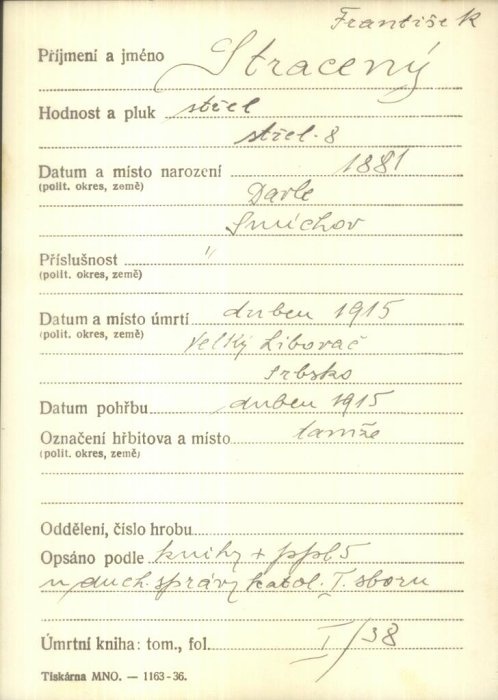 František
Příjmení a jméno Stracený
Hodnost a pluk střel
střel. 8
Datum a místo narození 1881
(polit. okres, země) Davle
Smíchov
Příslušnost "
(polit. okres, země)
Datum a místo úmrtí duben 1915
(polit. okres, země) Velký Libovač
Srbsko
Datum pohřbu duben 1915
Označení hřbitova a místo tamže
(polit. okres, země)
Oddělení, číslo hrobu
Opsáno podle knihy + ppl 5
u duch. správy katol. I. sboru
Úmrtní kniha: tom., fol. I/38
Tiskárna MNO. — 1163-36.